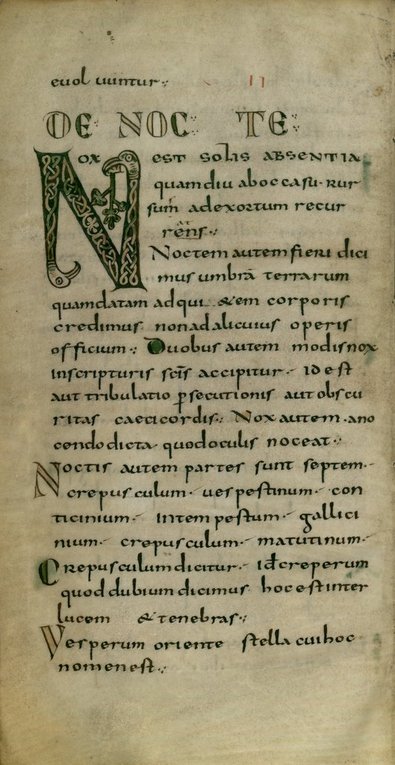 euoluuntur·,· II
DE NOCTE·,·
Nox est solis absentia
quamdiu aboccasu· rur
sum̄ adexortum recur
rens·
at
Noctem autem fieri dici
mus umbrā terrarum
quamdatam adqui etem corporis
credimus nonad alicuius operis
officium·,· Duobus autem modis nox
inscripturis scīs accipitur· id est
aut tribulatio psecutionis aut obscu
ritas caeci cordis·, Nox autem· ano
cendo dicta· quod oculis noceat·,·
Noctis autem partes sunt septem·
crepusculum· uespestinum· con
ticinium· intempestum· gallici
nium· crepusculum· matutinum·
Crepusculum dicitur· id creperum
quod dubium dicimus hoc est inter
lucem & tenebras·,·
Vesperum oriente stella cui hoc
nomen est·,·